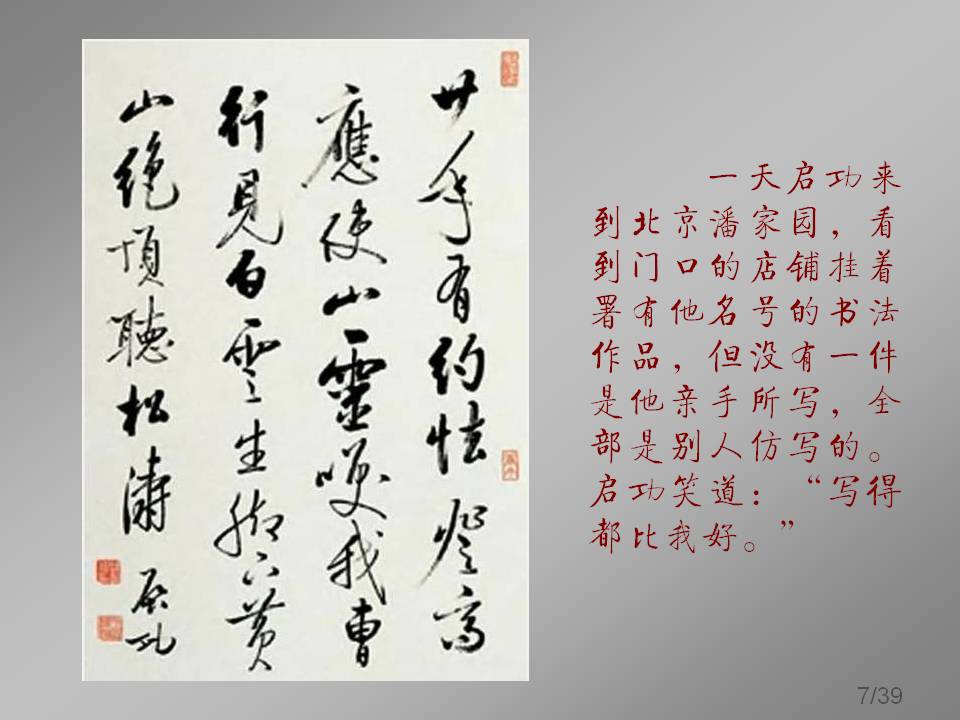 廿年有約怯登高
應使山靈我曹
行見白雲生脚下黄
山絶頂聽松濤
启功
一天启功来
到北京潘家园，看
到门口的店铺挂着
署有他名号的书法
作品，但没有一件
是他亲手所写，全
部是别人仿写的。
启功笑道：“写得
都比我好。”
7/39